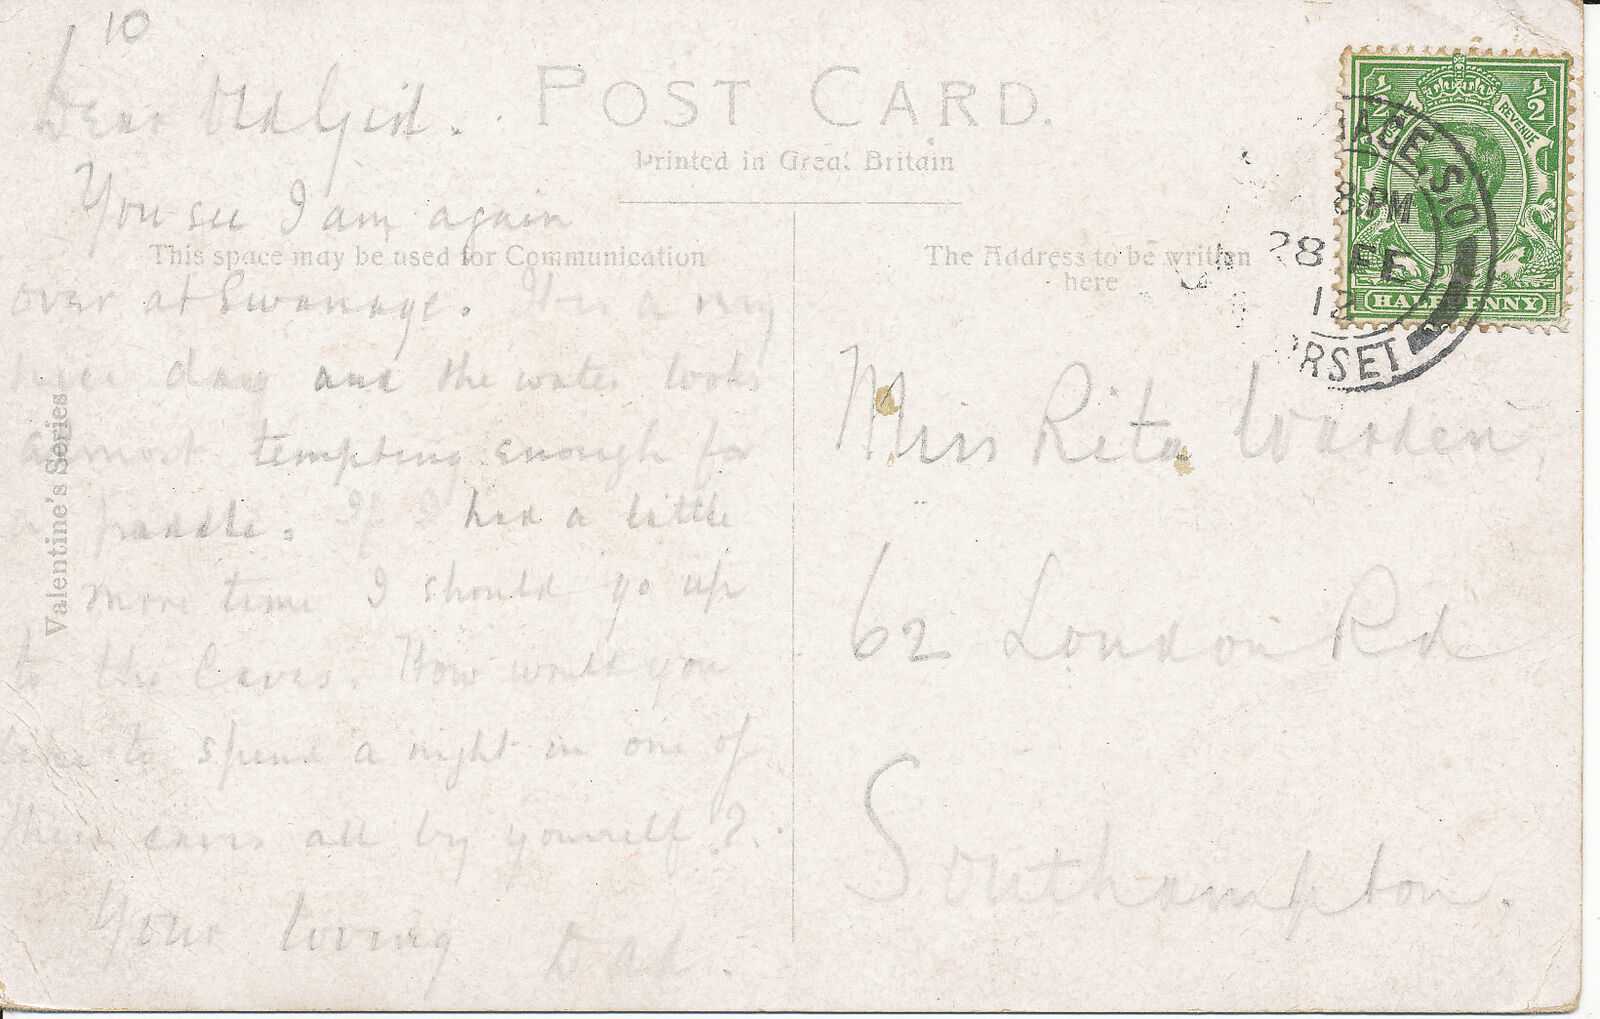 10
Dear Old Girl.
POST CARD.
Printed in Great Britain
You see I am again
This space may be used for Communication
over at Swanage. It is a very
nice day and the water looks
almost tempting enough for
a paddle. If I had a little
more time I should go up
to the Caves. How would you
like to spend a night in one of
these caves all by yourself?
Your loving
Dad.
Valentine's Series
The Address to be written
here
Miss Rita Warden,
62 London Rd
Southampton.
½ ½
REVENUE
HALFPENNY
AGE. S.O
8. PM
28 FE
12
RSET